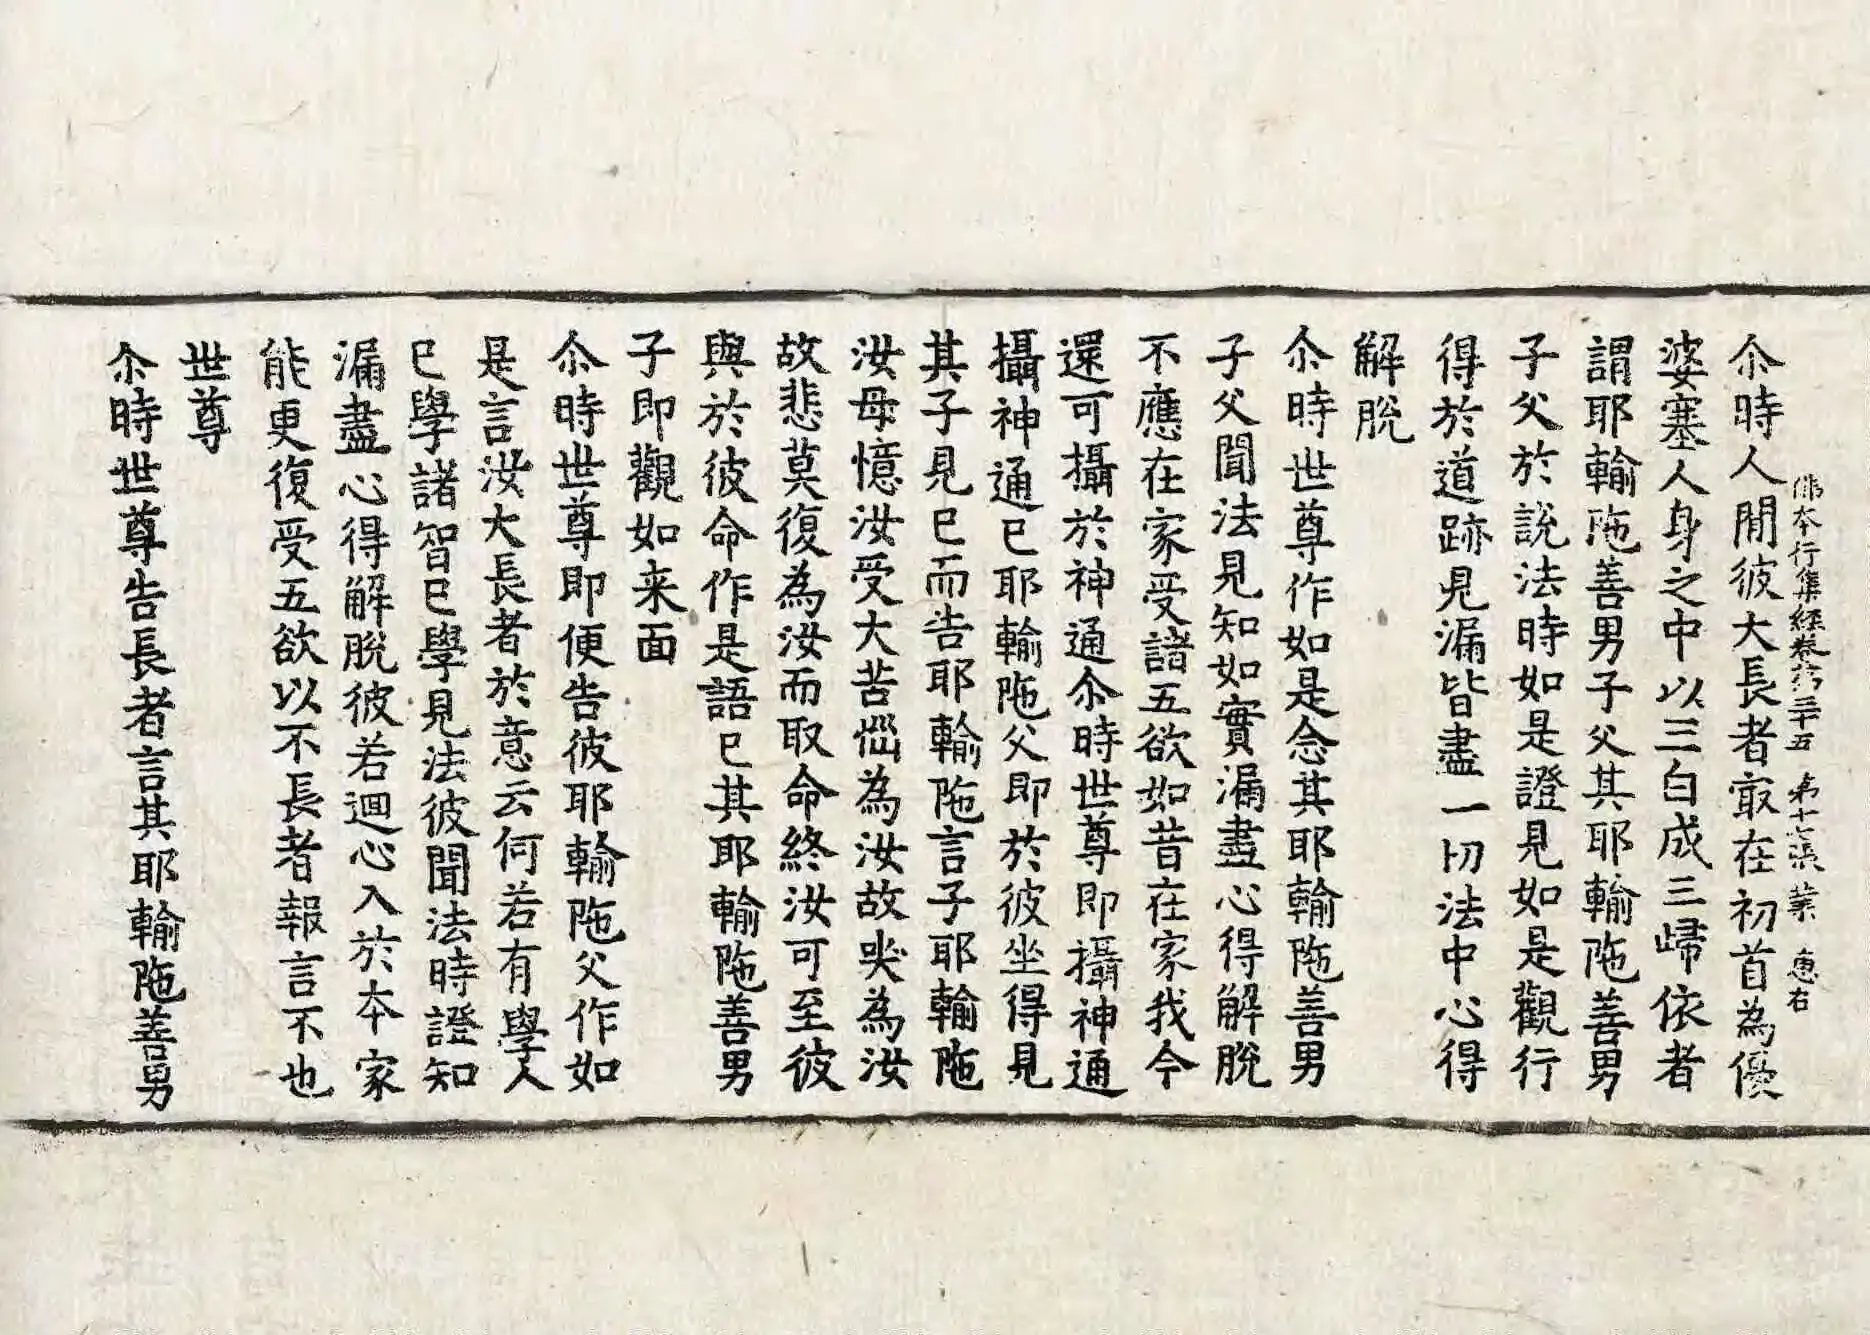 佛本行集經卷第三十五 第十七張 業 惠右
尒時人閒彼大長者㝡在初首為優
婆塞人身之中以三白成三歸依者
謂耶輸陁善男子父其耶輸陁善男
子父於說法時如是證見如是觀行
得於道跡見漏皆盡一切法中心得
解脫
尒時世尊作如是念其耶輸陁善男
子父聞法見知如實漏盡心得解脫
不應在家受諸五欲如昔在家我今
還可攝於神通尒時世尊即攝神通
攝神通已耶輸陁父即於彼坐得見
其子見已而告耶輸陁言子耶輸陁
汝母憶汝受大苦惱為汝故哭為汝
故悲莫復為汝而取命終汝可至彼
與於彼命作是語已其耶輸陁善男
子即觀如来面
尒時世尊即便告彼耶輸陁父作如
是言汝大長者於意云何若有學人
已學諸智已學見法彼聞法時證知
漏盡心得解脫彼若迴心入於本家
能更復受五欲以不長者報言不也
世尊
尒時世尊告長者言其耶輸陁善男